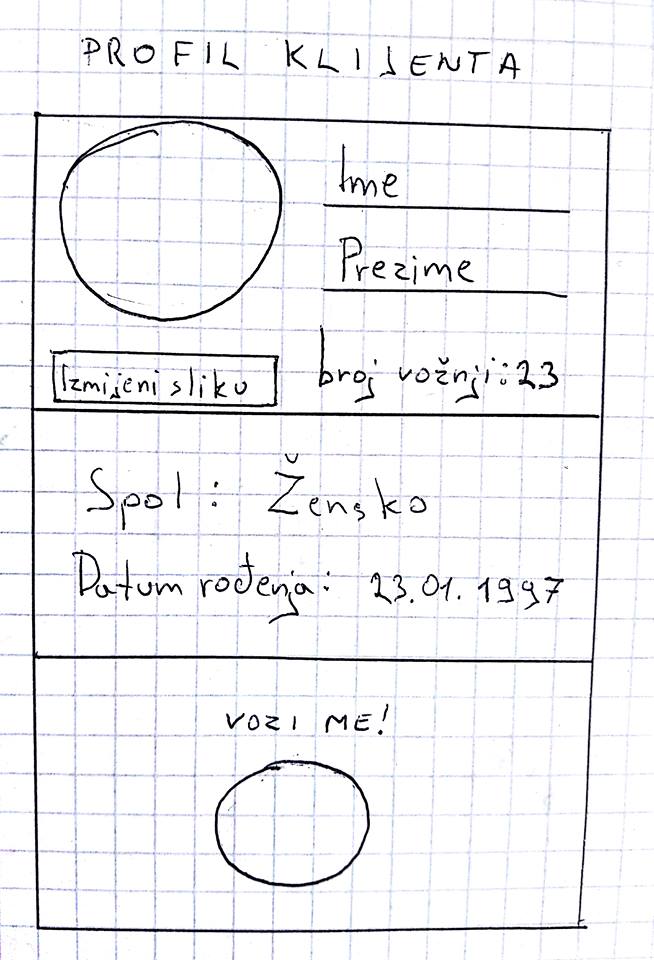 PROFIL KLIJENTA
Ime
Prezime
Izmijeni sliku
broj vožnji: 23
Spol: Žensko
Datum rođenja: 23.01.1997
VOZI ME!